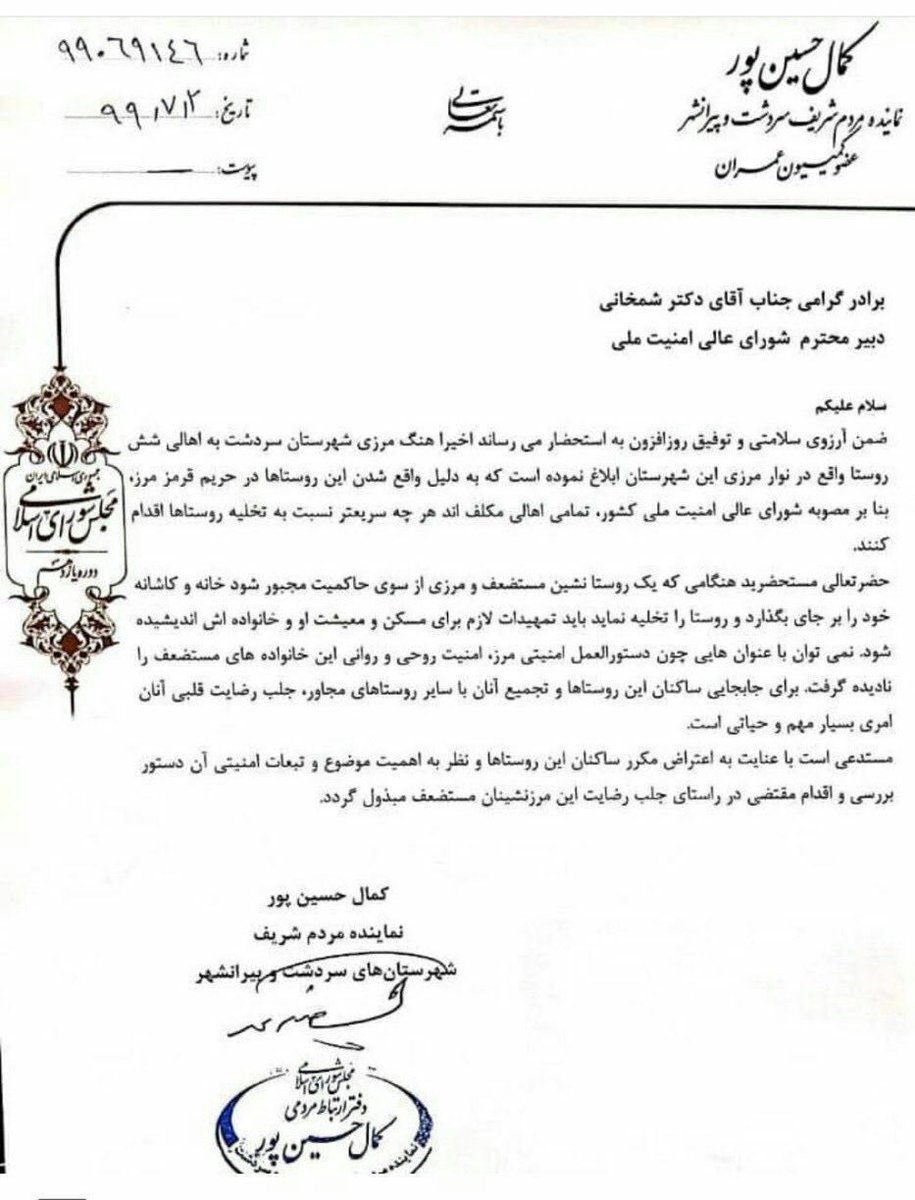 کمال حسین پور
نماینده مردم شریف سردشت و پیرانشهر
عضو کمیسیون عمران
باسمه تعالی
شماره: ۹۹۰۶۹۱۴۶
تاریخ: ۹۹/۷/۲
پیوست: ـــ
برادر گرامی جناب آقای دکتر شمخانی
دبیر محترم شورای عالی امنیت ملی
سلام علیکم
ضمن آرزوی سلامتی و توفیق روزافزون به استحضار می رساند اخیرا هنگ مرزی شهرستان سردشت به اهالی شش
روستا واقع در نوار مرزی این شهرستان ابلاغ نموده است که به دلیل واقع شدن این روستاها در حریم قرمز مرز،
بنا بر مصوبه شورای عالی امنیت ملی کشور، تمامی اهالی مکلف اند هر چه سریعتر نسبت به تخلیه روستاها اقدام
کنند.
حضرتعالی مستحضرید هنگامی که یک روستا نشین مستضعف و مرزی از سوی حاکمیت مجبور شود خانه و کاشانه
خود را بر جای بگذارد و روستا را تخلیه نماید باید تمهیدات لازم برای مسکن و معیشت او و خانواده اش اندیشیده
شود. نمی توان با عنوان هایی چون دستورالعمل امنیتی مرز، امنیت روحی و روانی این خانواده های مستضعف را
نادیده گرفت. برای جابجایی ساکنان این روستاها و تجمیع آنان با سایر روستاهای مجاور، جلب رضایت قلبی آنان
امری بسیار مهم و حیاتی است.
مستدعی است با عنایت به اعتراض مکرر ساکنان این روستاها و نظر به اهمیت موضوع و تبعات امنیتی آن دستور
بررسی و اقدام مقتضی در راستای جلب رضایت این مرزنشینان مستضعف مبذول گردد.
جمهوری اسلامی ایران
مجلس شورای اسلامی
دوره یازدهم
کمال حسین پور
نماینده مردم شریف
شهرستان‌های سردشت و پیرانشهر
مجلس شورای اسلامی
دفتر ارتباط مردمی
کمال حسین پور